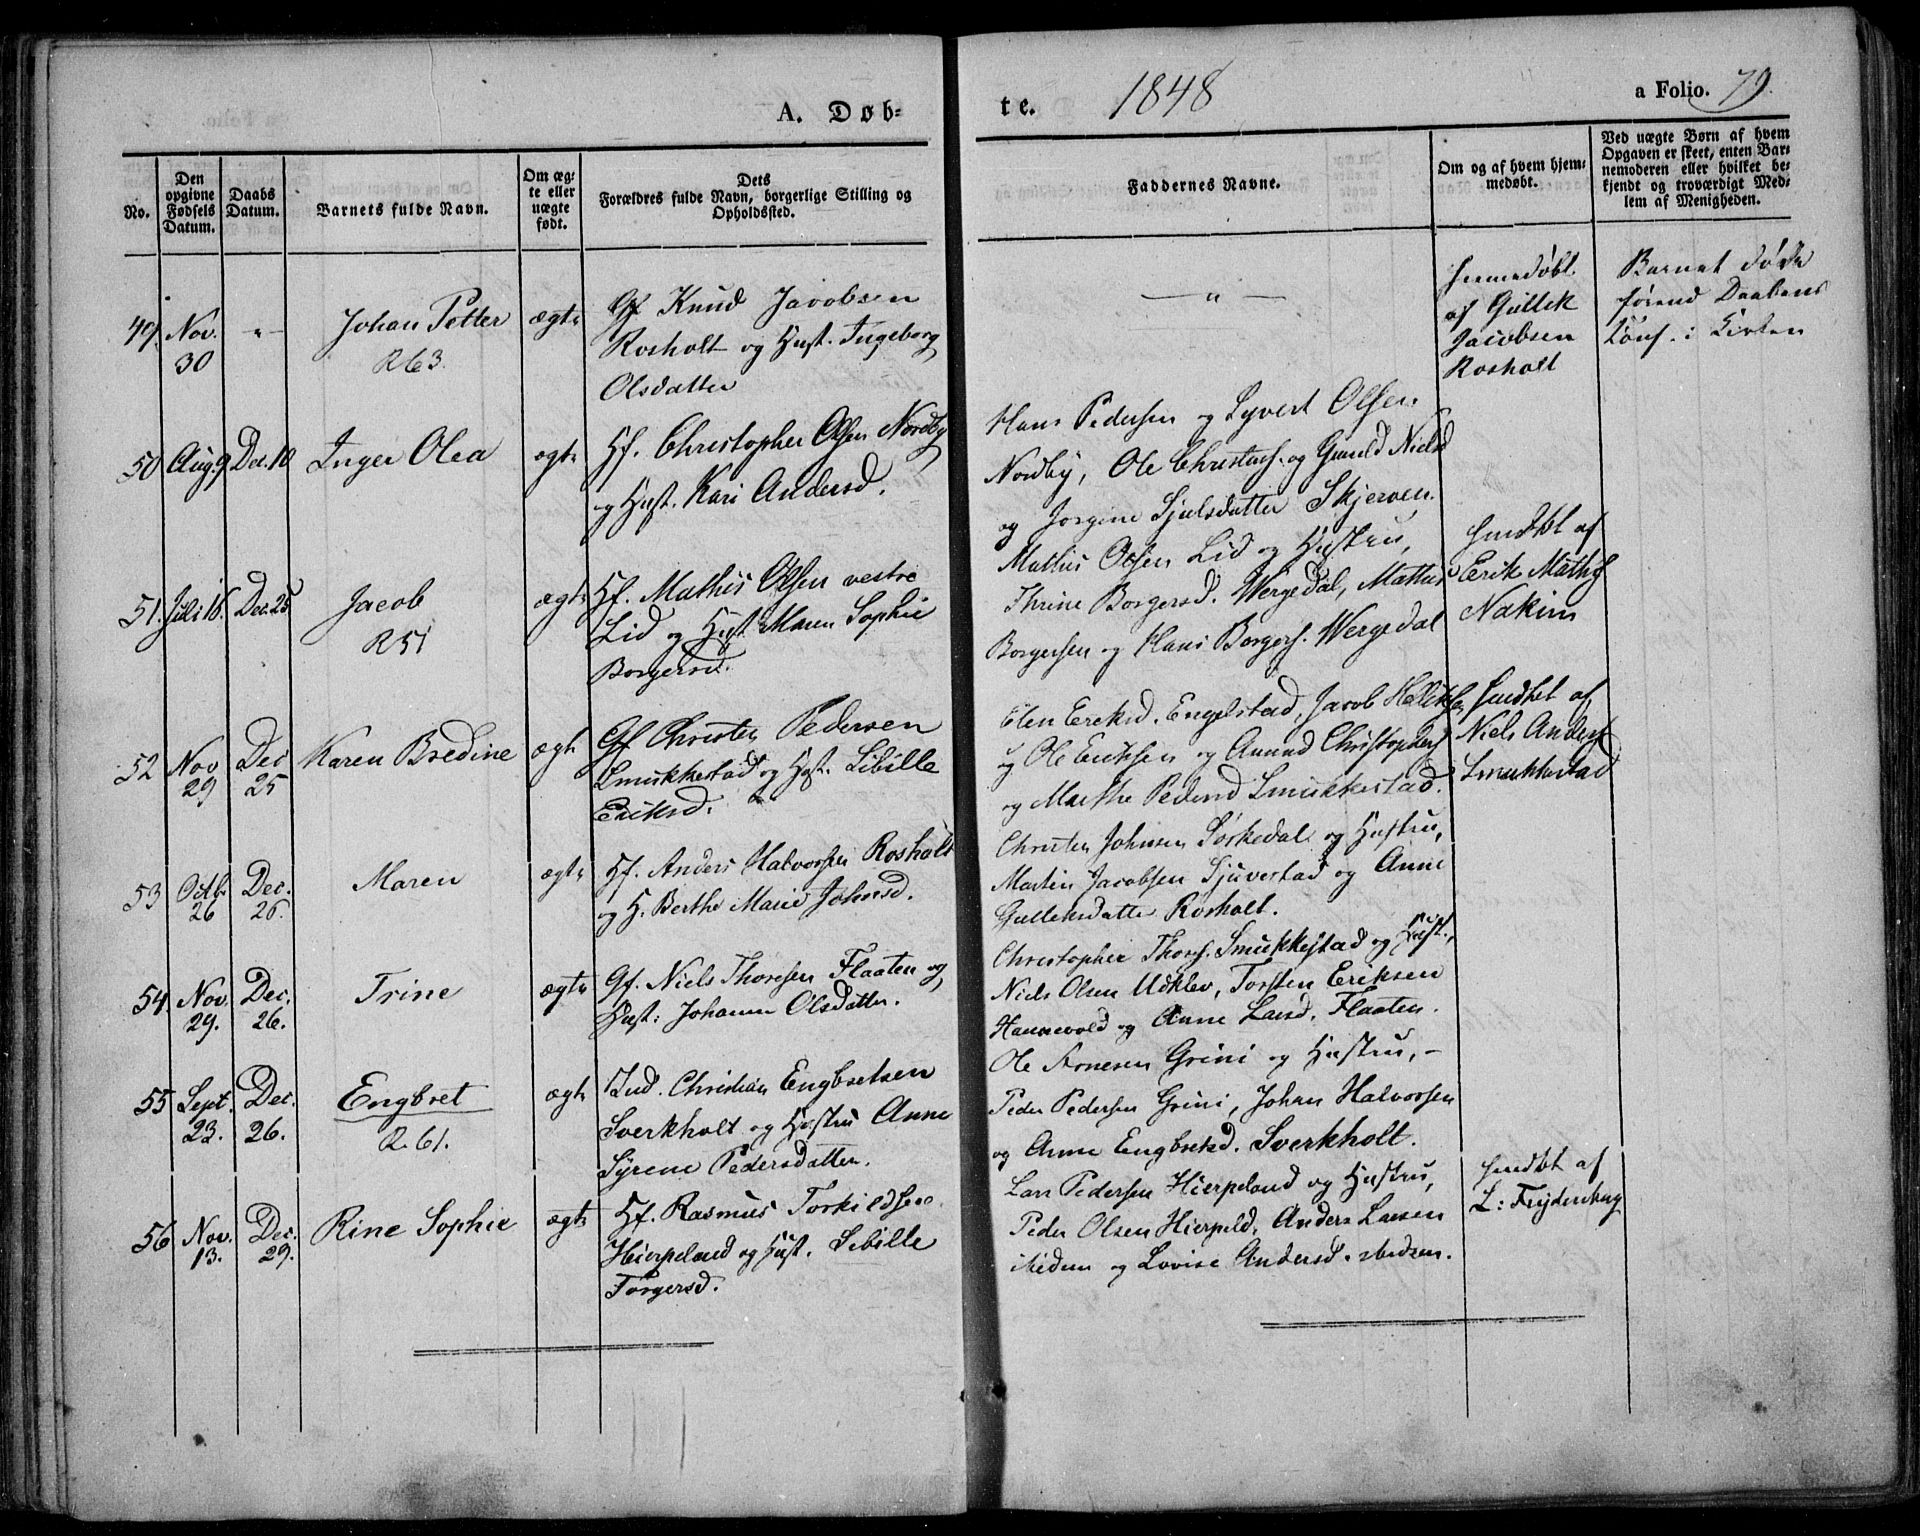 A. Døb-
te.
1848
a Folio. 79.
No.
Den opgivne Fødsels Datum.
Daabs Datum.
Barnets fulde Navn.
Om ægte eller uægte født.
Dets Forældres fulde Navn, borgerlige Stilling og Opholdssted.
Faddernes Navne.
Om og af hvem hjemmedøbt.
Ved uægte Børn af hvem Opgaven er skeet, enten Barnemoderen eller hvilket bekjendt og troværdigt Medlem af Menigheden.
49. Nov. 30
"
Johan Petter
R 63.
ægte
Gf Knud Jacobsen
Rosholt og Hust. Ingeborg
Olsdatter
— " —
hjemmedøbt
af Gullik
Jacobsen
Rosholt
Barnet døde
førend Daabens
i Kirken
50 Aug. 9 Dec. 10
Inger Olea
ægte
Hf. Christopher Olsen Nordby
og Hust. Kari Andersd.
Hans Pedersen og Syvert Olsen
Nordby, Ole Christens. og Gunild Nielsd
og Jorgine Sjulsdatter Skjerven.
51. Juli 16. Dec. 25
Jacob
R 51
ægte
Hf. Mathis Olsen vestre
Lid og Hust Maren Sophie
Borgersd.
Mathis Olsen Lid og Hustru,
Thrine Borgersd. Wergedal, Mathis
Borgersen og Hans Borgers. Wergedal
hmdbt af
Erik Mathis
Nakim
52 Nov 29 Dec 25
Karen Bredine
ægte
Gf Christen Pedersen
Smukkestad og Hust. Sibille
Eriksd.
Elen Eriksd. Engelstad, Jacob
og Ole Eriksen og Amund Christophers
og Marthe Pedersd Smukkestad.
hmdbt af
Niels Anders
Smukkestad
53 Octb. 26 Dec. 26.
Maren
ægte
Hf. Anders Halvorsen Rosholt
og H. Berthe Marie Johnsd.
Christen Johnsen Sørkedal og Hustru,
Martin Jacobsen Sjuvestad og Anne
Gulleksdatter Rosholt.
54 Nov. 29. Dec. 26.
Trine
ægte
Gf. Niels Thoresen Flaaten og
Hust: Johanne Olsdatter.
Christopher Thors. Smukkestad og Hust.,
Niels Olsen Udklev, Torsten Eriksen
Hannevold og Anne Larsd. Flaaten.
55 Sept. 23. Dec. 26.
Engbret
R. 61.
ægte
Ind. Christian Engbretsen
Sverkholt og Hustru Anne
Syrene Pedersdatter.
Ole Arnesen Grini og Hustru, –
Peder Pedersen Grini, Johan Halvorsen
og Anne Engbretsd. Sverkholt.
56 Nov. 13. Dec. 29.
Rine Sophie
ægte
Hf. Rasmus Torkildsen
Hierpeland og Hust. Sibille
Torgersd.
Lars Pedersen Hierpeland og Hustru,
Peder Olsen Hierpeld, Anders Larsen
og Lovise Andersd.
hmdbt af